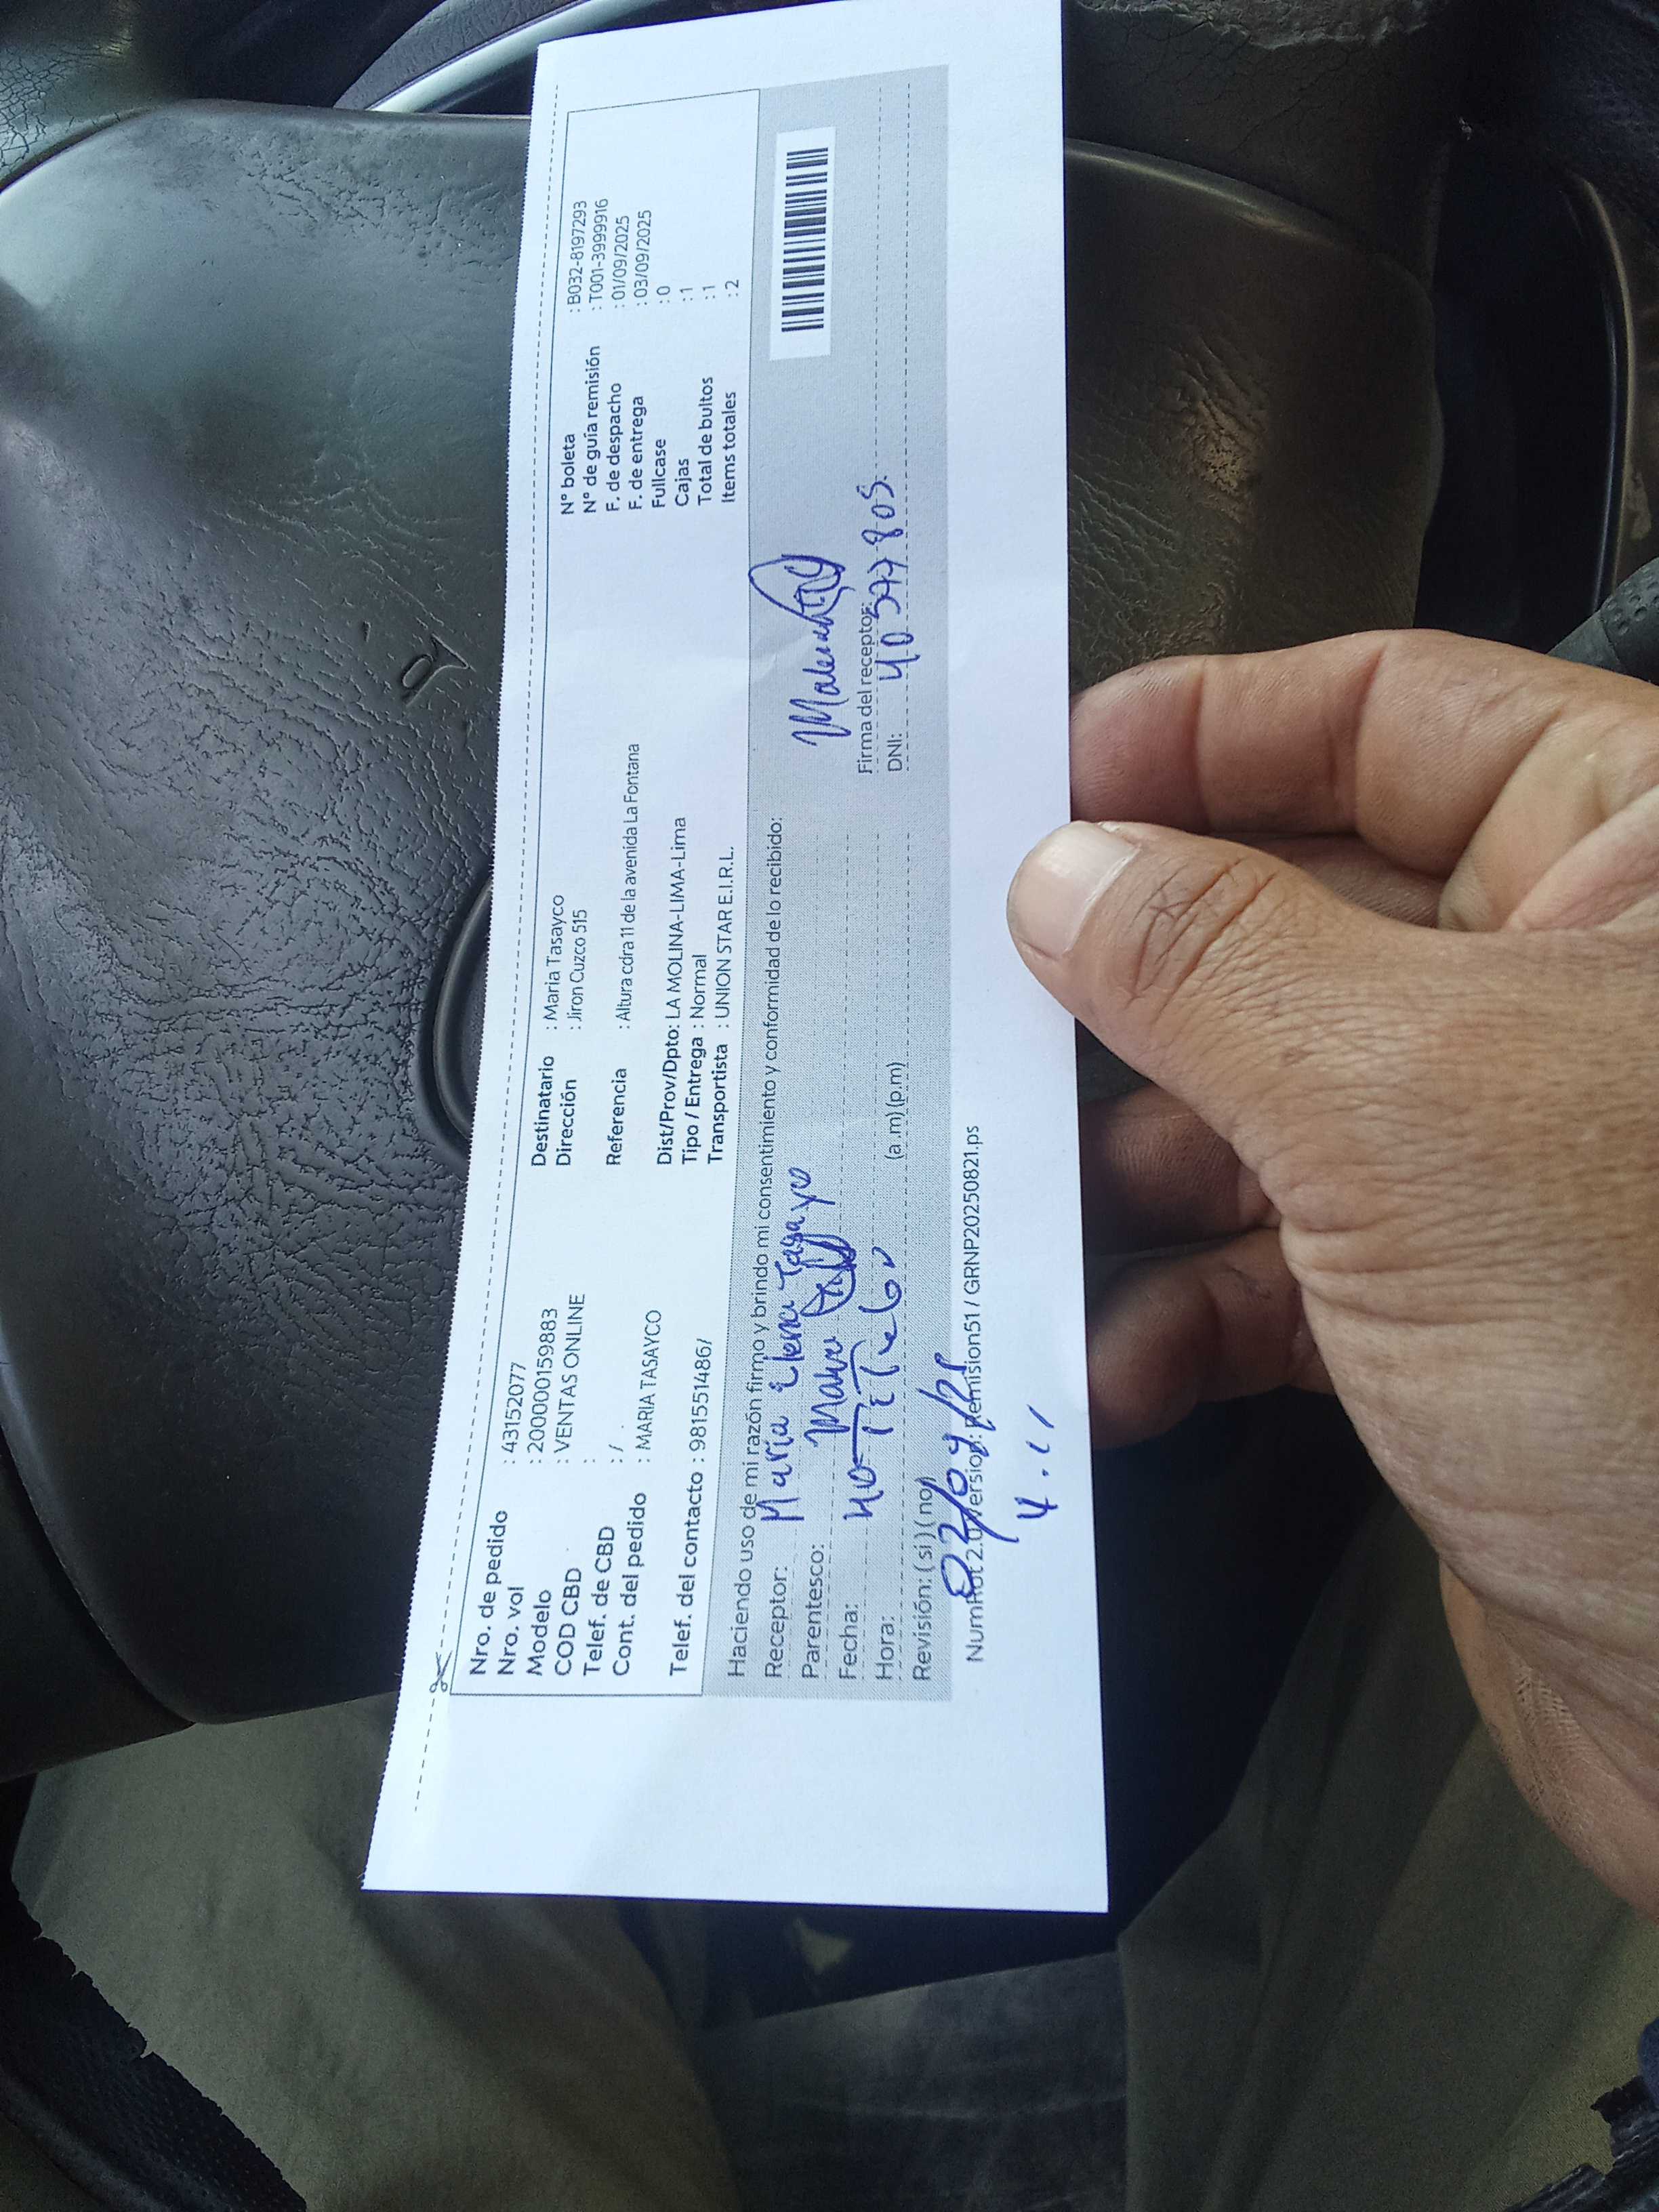 Nro. de pedido : 43152077
Nro. vol : 2000000159883
Modelo : VENTAS ONLINE
COD CBD :
Telef. de CBD : / .
Cont. del pedido : MARIA TASAYCO
Telef. del contacto : 981551486/
Destinatario : Maria Tasayco
Dirección : Jiron Cuzco 515
Referencia : Altura cdra 11 de la avenida La Fontana
Dist/Prov/Dpto: LA MOLINA-LIMA-Lima
Tipo / Entrega : Normal
Transportista : UNION STAR E.I.R.L.
N° boleta : B032-8197293
N° de guía remisión : T001-3999916
F. de despacho : 01/09/2025
F. de entrega : 03/09/2025
Fullcase : 0
Cajas : 1
Total de bultos : 1
Items totales : 2
Haciendo uso de mi razón firmo y brindo mi consentimiento y conformidad de lo recibido:
Receptor: María Elena Tasayco
Parentesco:
Fecha:
Hora: (a.m) (p.m)
Revisión: ( si ) ( no )
Firma del receptor:
DNI: 40597805.
NumHot 2.0 Version: Remision51 / GRNP20250821.ps